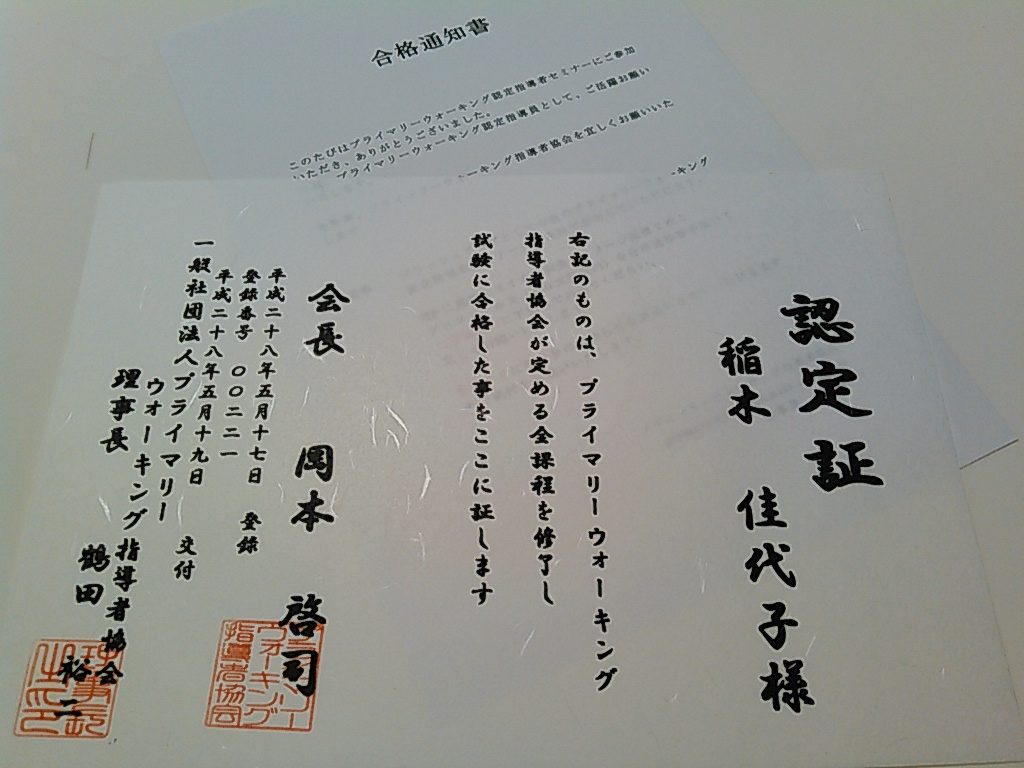 合格通知書
このたびはプライマリーウォーキング認定指導者セミナーにご参加
いただき、ありがとうございました。
プライマリーウォーキング認定指導員として、ご活躍お願い
ォーキング指導者協会を宜しくお願いいた
ーキング
認定証
稲木 佳代子様
右記のものは、プライマリーウォーキング
指導者協会が定める全課程を修了し
試験に合格した事をここに証します
会長 岡本 啓司
平成二十八年五月十七日 登録
登録番号 〇〇二二一
平成二十八年五月十九日 交付
一般社団法人プライマリー
ウォーキング指導者協会
理事長 鶴田 裕二
プライマリー
ウォーキング
指導者協会
理事長
之印